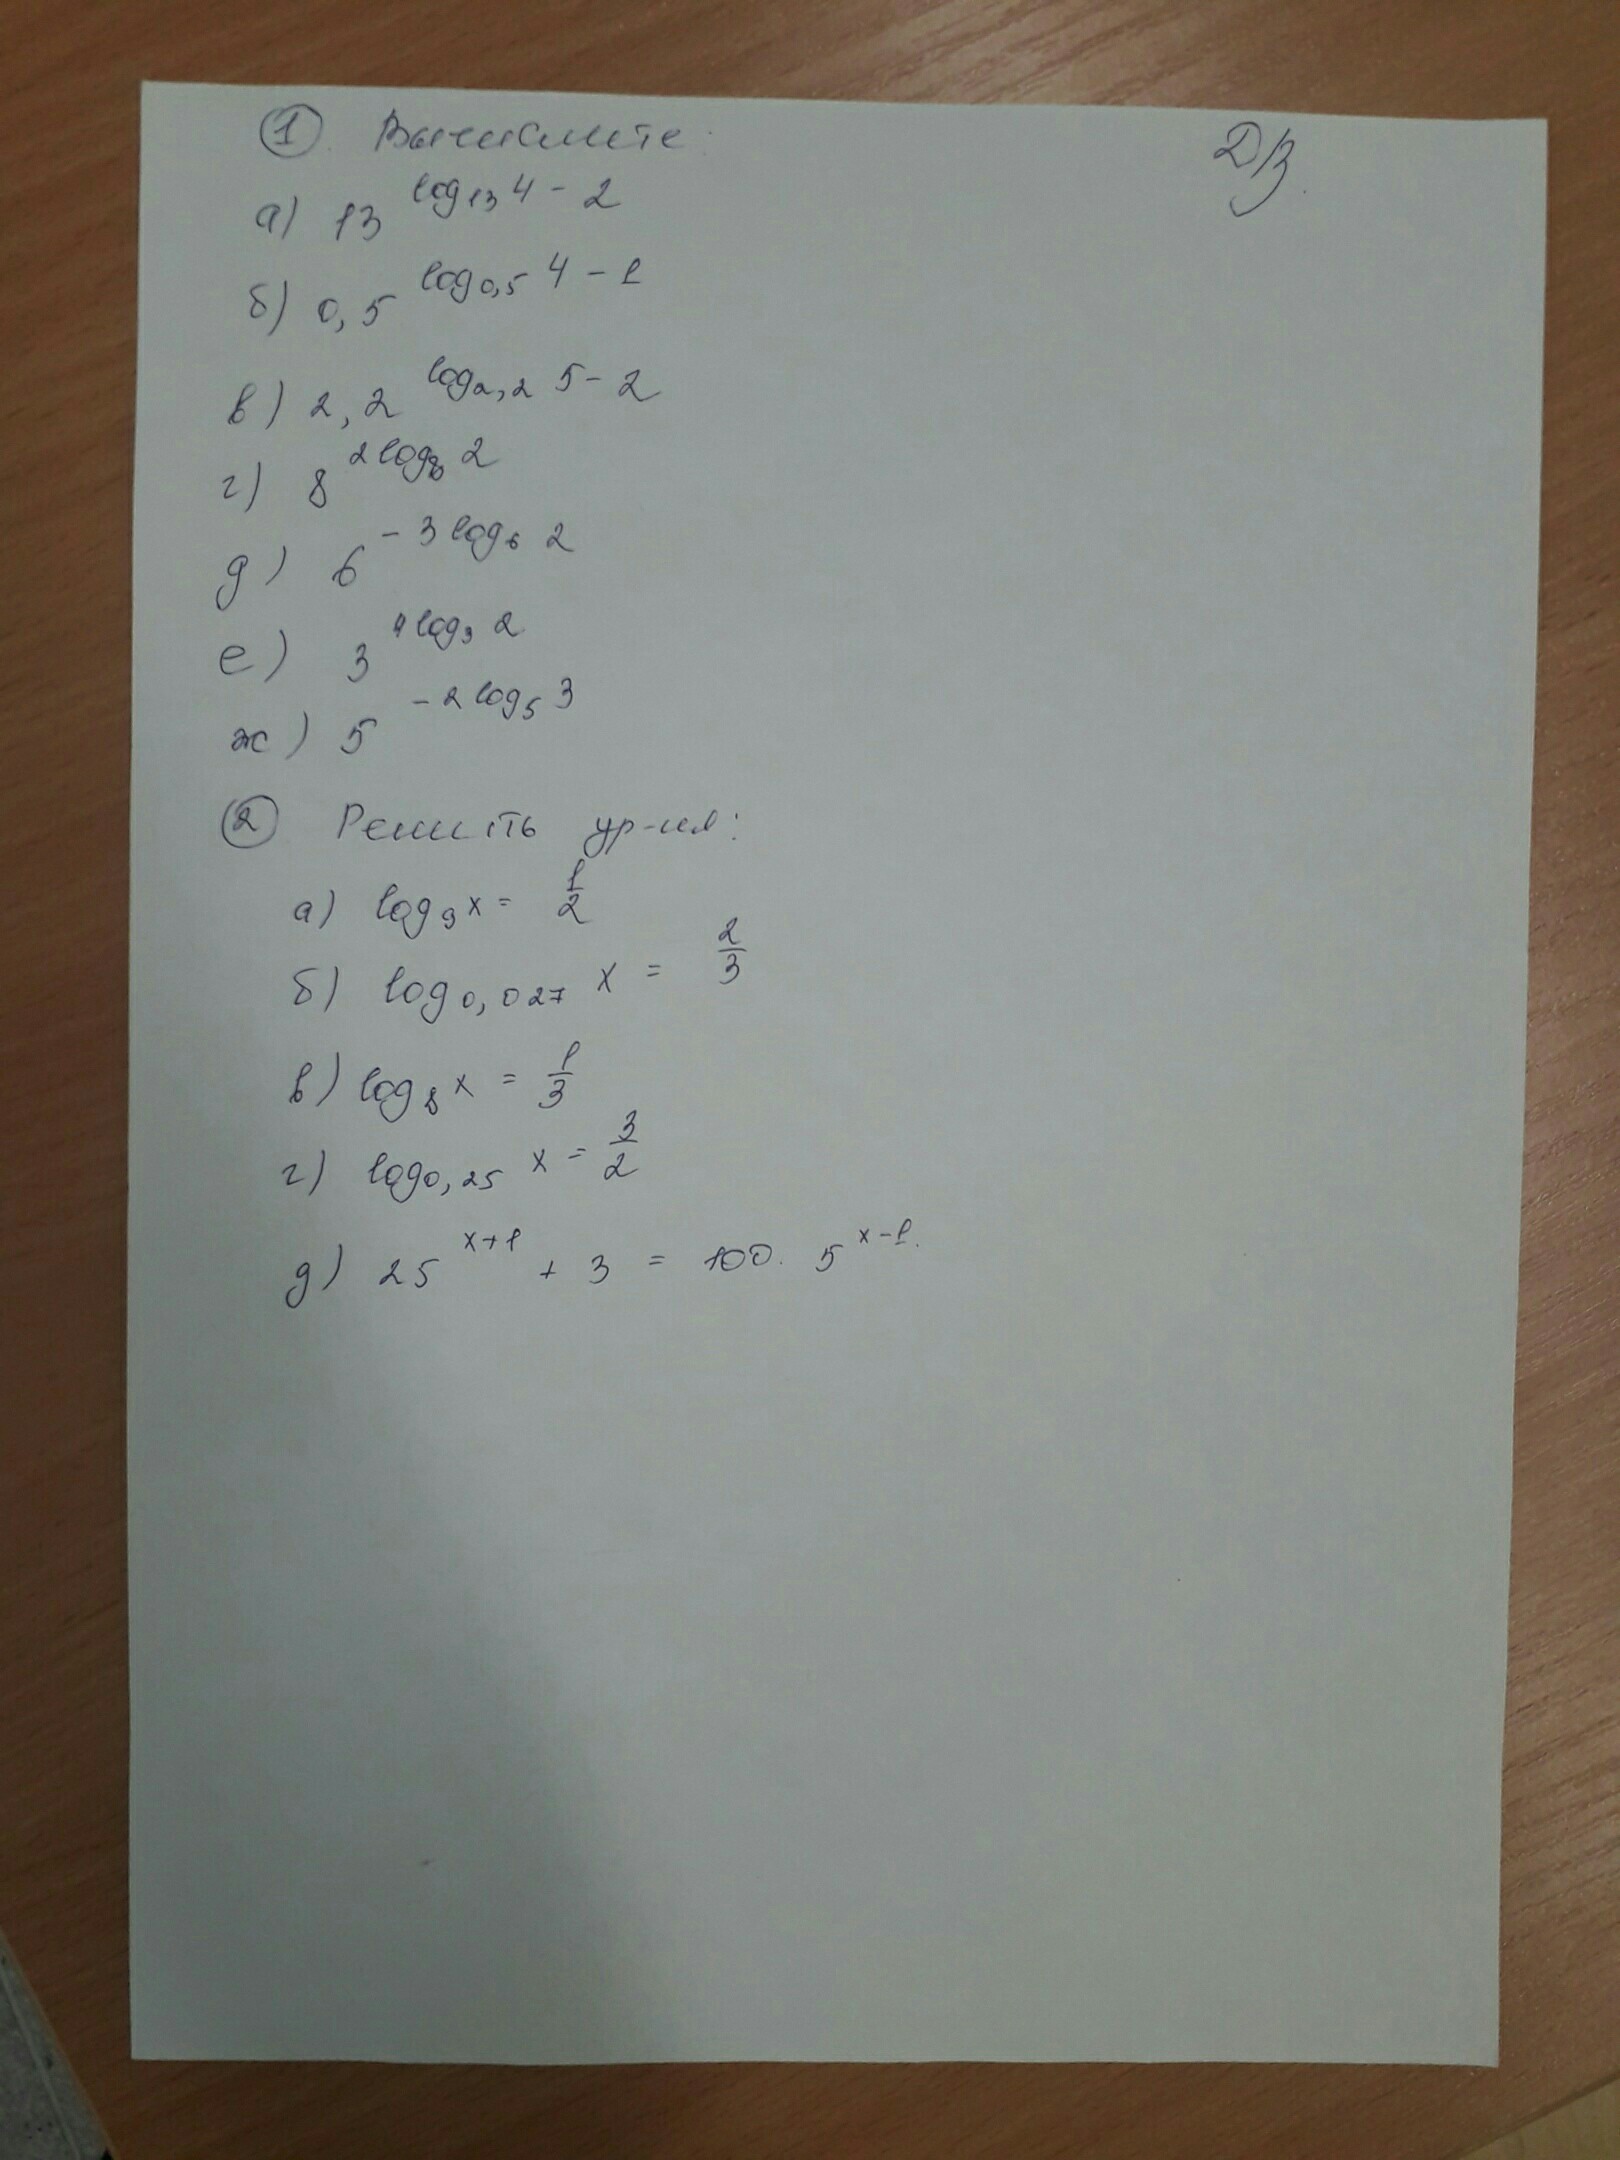 ① Вычислите:
ДЗ.
а) 13^(log₁₃ 4 - 2)
б) 0,5^(log₀,₅ 4 - 1)
в) 2,2^(log₂,₂ 5 - 2)
г) 8^(2 log₈ 2)
д) 6^(-3 log₆ 2)
е) 3^(4 log₃ 2)
ж) 5^(-2 log₅ 3)
② Решить ур-ия:
а) log₉ x = 1/2
б) log₀,₀₂₇ x = 2/3
в) log₈ x = 1/3
г) log₀,₂₅ x = 3/2
д) 25^(x+1) + 3 = 100 · 5^(x-1).